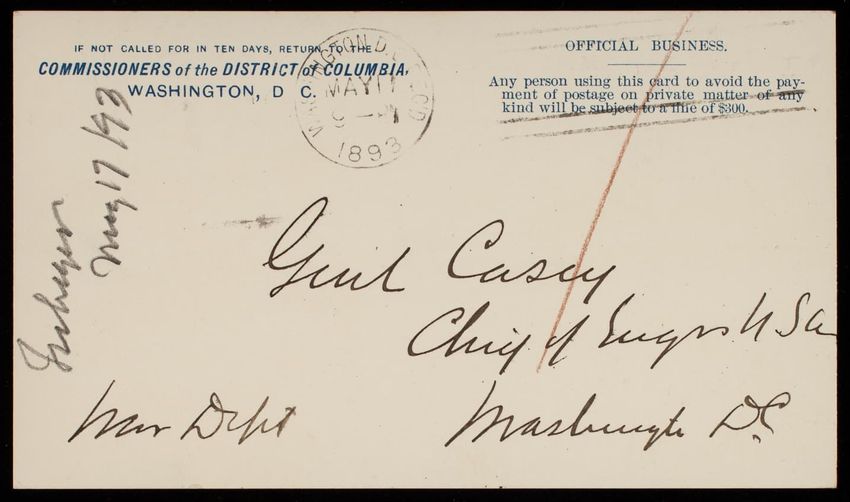 IF NOT CALLED FOR IN TEN DAYS, RETURN TO THE
COMMISSIONERS of the DISTRICT of COLUMBIA,
WASHINGTON, D C.
WASHINGTON, D.C.
MAY 17
1893
OFFICIAL BUSINESS.
Any person using this card to avoid the pay-
ment of postage on private matter of any
kind will be subject to a fine of $300.
May 17/93
Genl Casey
Chief of Engrs U S A
War Dept
Washington D.C.